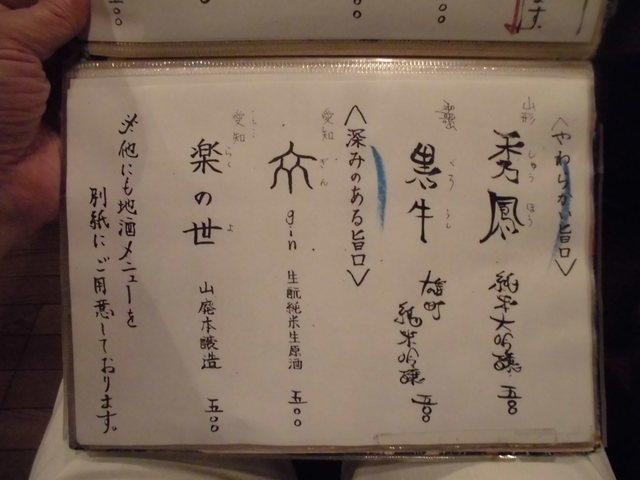 ます。
五〇〇
五〇〇
〈やわらかい旨口〉
山形
秀鳳 純米大吟醸 五〇〇
しゅう ほう
黒牛 雄町 純米吟醸 五〇〇
くろ うし
〈深みのある旨口〉
愛知
gin 生酛純米生原酒 五〇〇
ぎん
愛知
楽の世 山廃本醸造 五〇〇
らく よ
※他にも地酒メニューを
別紙にご用意しております。